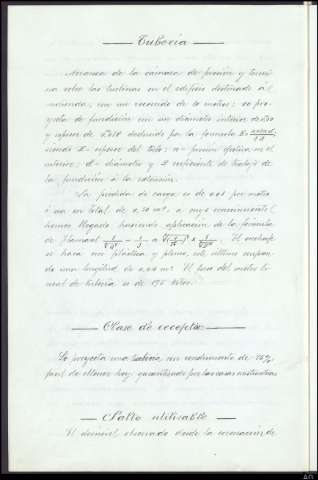 Tubería
Arranca de la cámara de presión y termi-
na sobre las turbinas en el edificio destinado al
con un recorrido de 10 metros; se pro-
yecta de fundición con un diámetro interior
y espesor de deducido por la formula E=
siendo E= espesor del tubo; n= presión efectiva en el
interior; d= diámetro y R coeficiente de trabajo de
la fundición á la extensión.
La pérdida de carga es de 0.03 por metro
ó sea un total de 0,30 m, a cuyo conocimiento
hemos llegado haciendo aplicación de la fórmula
de Flamant
se hará con plástica y plomo, este último ocupan-
do una longitud de El peso del metro li-
neal de tubería es de 195 kilos.
Clase de receptor
Se proyecta una turbina con rendimiento de 75%
facil de obtener hoy garantizado por las casas constructoras
Salto utilizable
El desnivel observado desde la coronación de